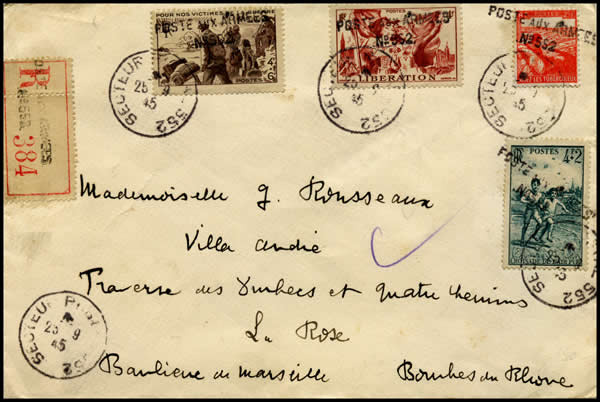 POUR NOS VICTIMES DE LA GUERRE
POSTE AUX ARMEES
No 552
4
6
POSTES
POSTE AUX ARMEES
No 552
LIBERATION
POSTE AUX ARMEES
No 552
SECTEUR 552
25 9
45
SECTEUR 552
45
SECTEUR 552
25 9
45
R
No 552
384
POSTES 4F+2F
POSTE
552
Mademoiselle J. Rousseaux
Villa André
Traverse des et quatre chemins
La Rose
Banlieue de Marseille Bouches du Rhone
SECTEUR POSTAL 552
25 9
45